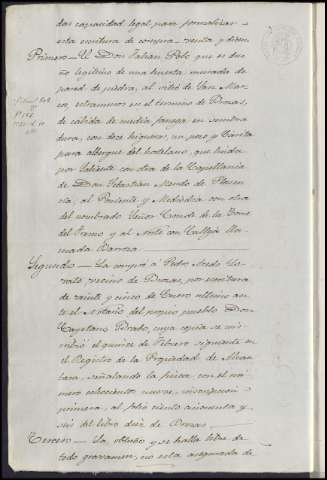 das capacidad legal, para formalizar
esta escritura de compra-venta, y dicen
Primero— El Don Julian Polo que es due-
ño legítimo de una huerta, murada de
pared de piedra, al sitio de San Mar-
cos, extramuros en el término de Brozas,
de cabida de media fanega en sembra-
dura, con dos higueras, un pozo y casita
para albergue del hortelano, que linda
por Saliente con otra de la Capellanía
de Don Sebastian de Plasen-
cia, al Poniente y Mediodia con otra
del nombrado Señor Conde de la Torre
del Fresno y al Norte con Calleja lla-
mada Barrosa.
Segundo— La compró a Pedro
vecino de Brozas, por escritura
de veinte y cinco de Enero último an-
te el Notario del propio pueblo Don
Cayetano, cuya copia se ins-
cribió el quince de Febrero siguiente en
el Registro de la Propiedad de Alcán-
tara, señalando la finca con el nú-
mero setecientos nueve, inscripcion
primera, al folio ciento cincuenta y
seis del libro diez de Brozas.
Tercero— La, y se halla libre de
todo gravamen, no está asegurada de